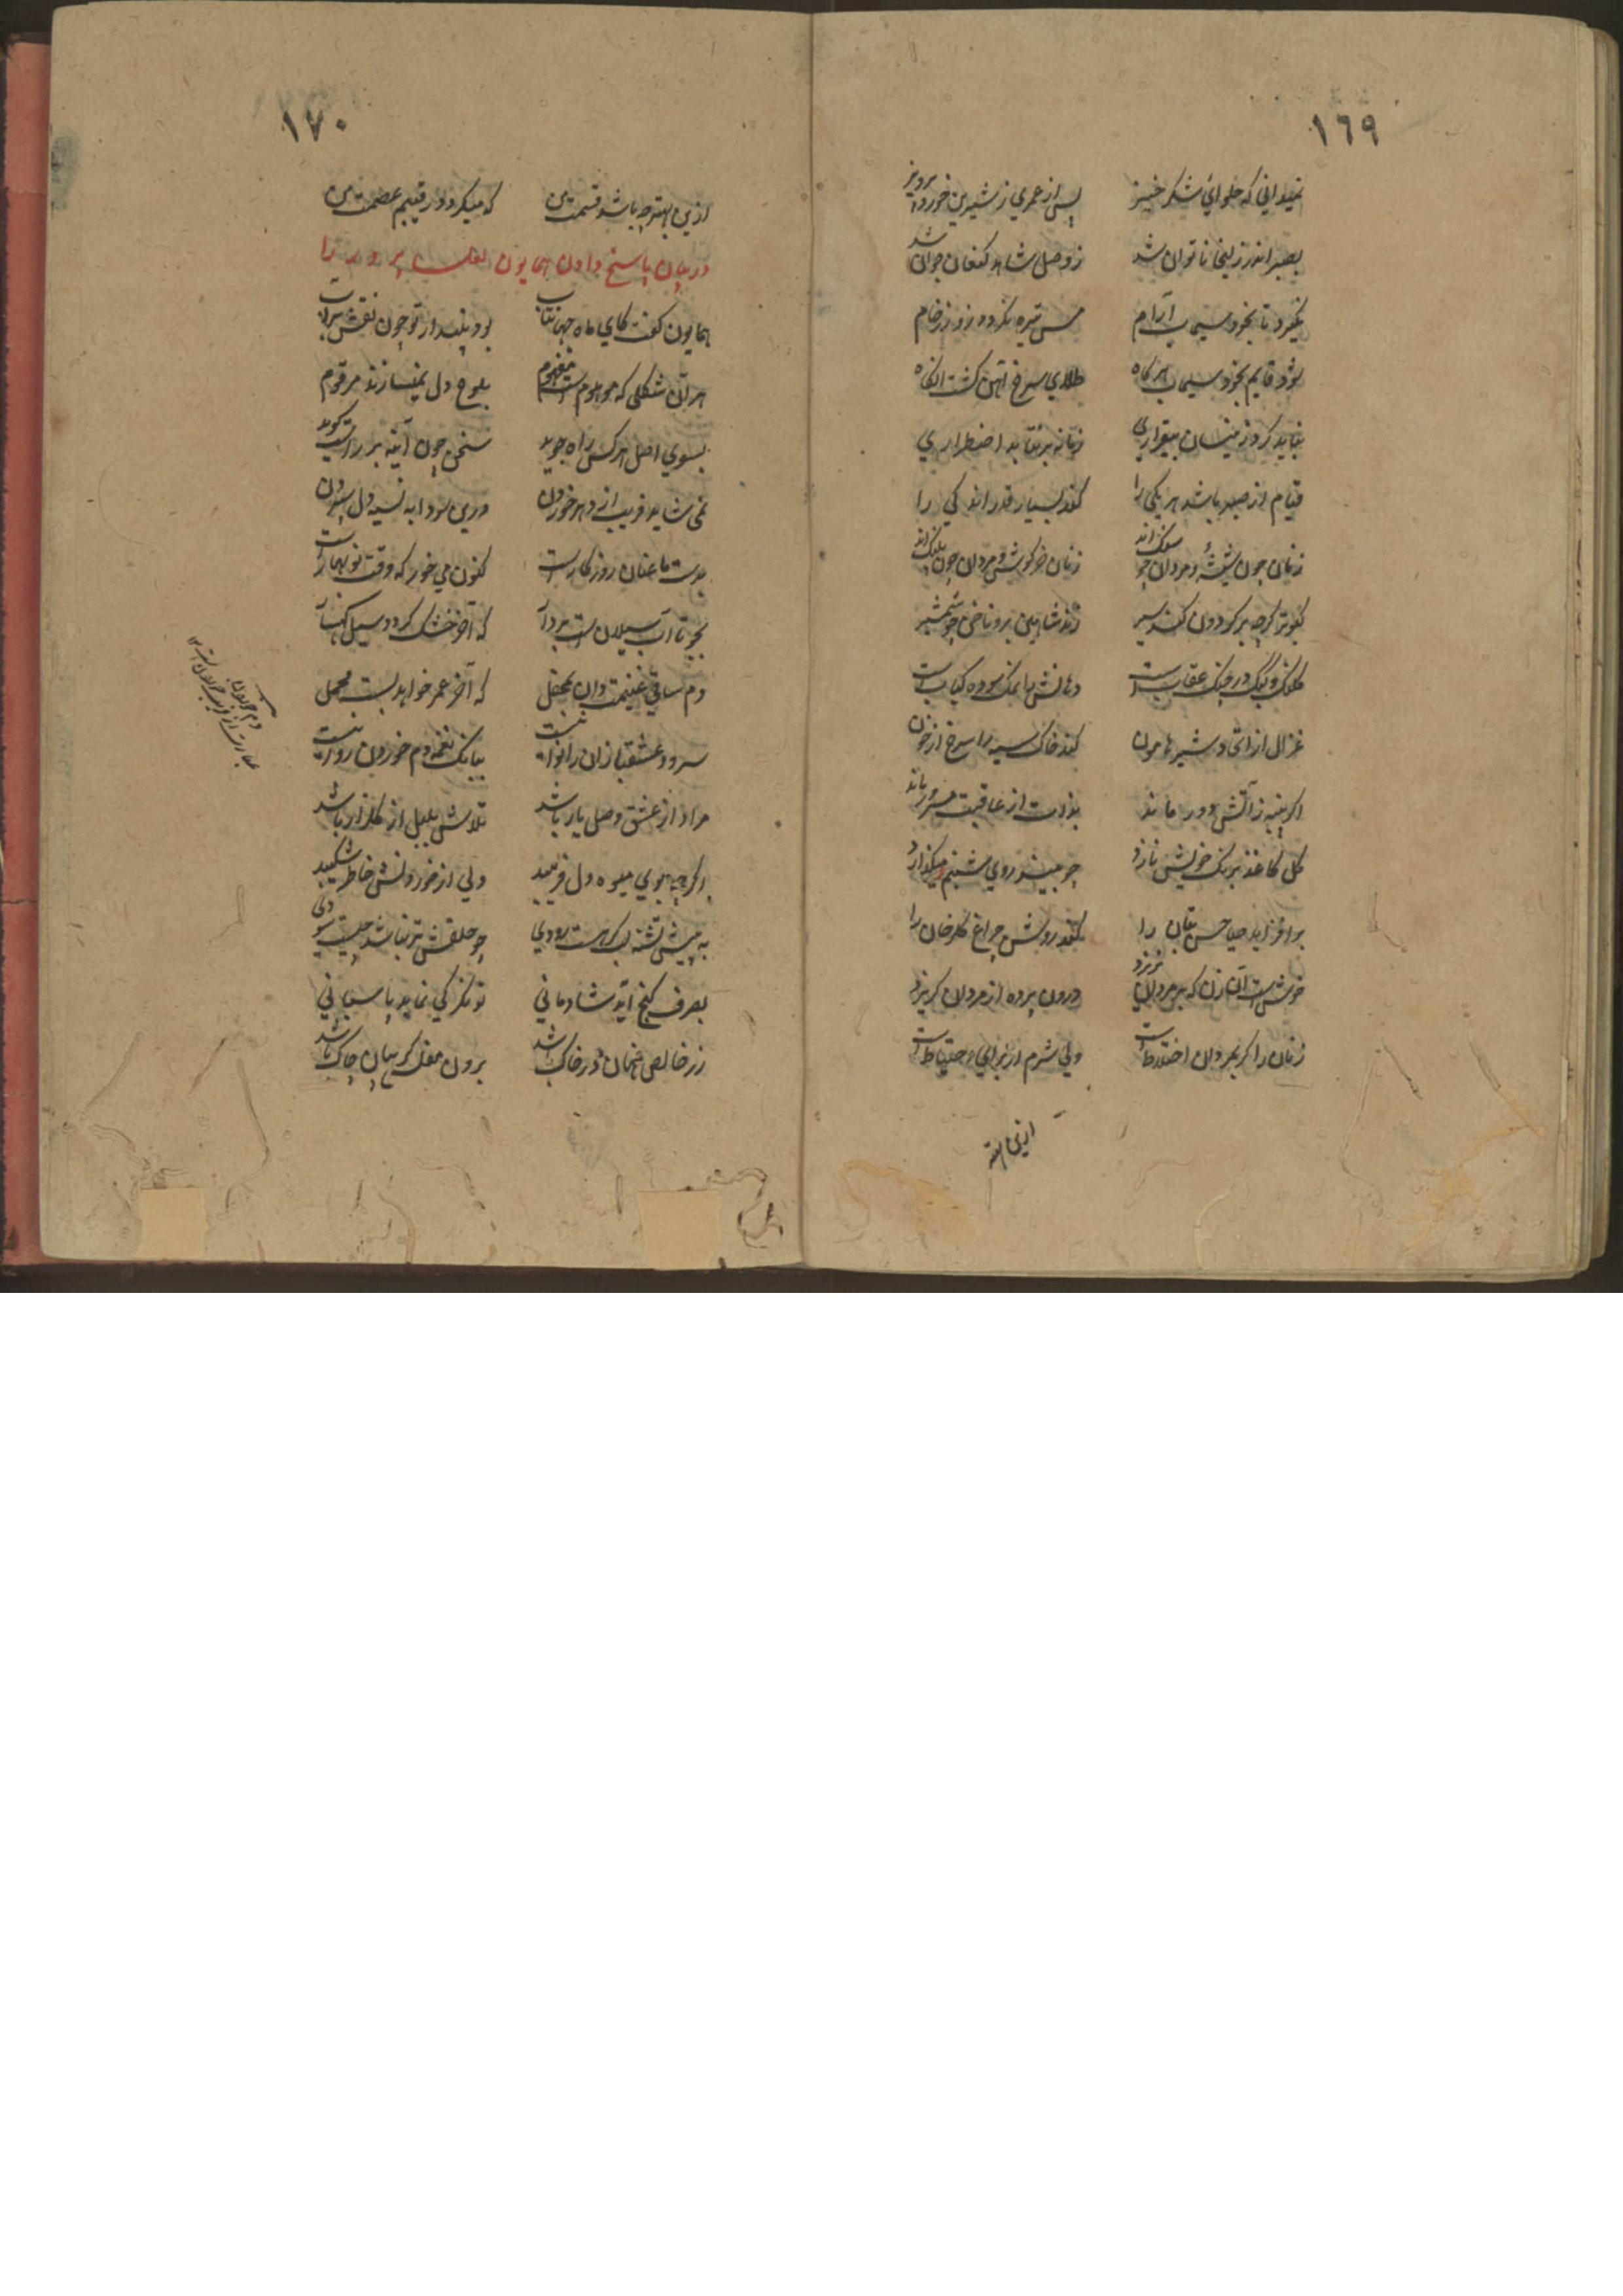 ١٦٩
نمیدانی که حلوای شکر خیز پس از عمری ز شیرین خورد پرویز
بصبر اندر زلیخا ناتوان شد ز وصل شاهد کنعان جوان شد
نگیرد تا بخود سیماب آرام مس تیره نگردد زو زر خام
شود قایم بخود سیماب هر گاه طلای سرخ آنهن گشت آنگاه
نباید کرد زینسان بیقراری زنانه برنتابد اضطراری
قیام از صبر باشد هر یکی را کند بسیار قدر اندکی را
زنان چون شیشه و مردان چو سنگ اند زنان خرگوش و مردان چون پلنگ اند
کبوتر گرچه بر گردون کند سیر زند شاهین برو ناخن چو شمشیر
کلنگ و کبک در چنگ عقاب است دهانش را نمک سوده کباب است
غزال از اتحاد شیر هامون کند خاک سیه را سرخ از خون
اگر پنبه ز آتش دور ماند بذات از عاقبت مسرور ماند
گل کاغذ برنگ خویش نازد چو بیند روی شبنم میگذارد
برافزاید حیا حسن بتان را کند روشن چراغ گلرخان را
خوش است آن زن که بر مردان نریزد درون پرده از مردان گریزد
زنان را گر بمردان اختلاط است ولی شرم از برای احتیاط است
ازین بهتر
١٧٠
ازین بهتر چه باشد قسمت من که میگردد رقیبم عصمت من
در بیان پاسخ دادن همایون لعل پرور را
همایون گفت کای ماه جهانتاب بود پندار تو چون نقش بر آب
هر آن شکلی که موهوم است مفهوم بلوح دل نمیسازند مرقوم
بسوی اصل هر کس راه جوید سخن چون آینه بر راست گوید
نمی شاید فریب از دهر خوردن درین سودا به نسیه دل سپردن
بدست ما عنان روزگار است کنون می خور که وقت نوبهار است
بجو تا آب سیلان است بردار که آخر خشک گردد سیل کهسار
دم ساقی غنیمت دان بمحفل که آخر عمر خواهد بست محمل
سرود عشقبازان را نوا نیست ببانک نغمه دم خوردن روا نیست
مراد از عشق وصل یار باشد تلاش بلبل از گلزار باشد
اگرچه بوی میوه دل فریبد ولی از خوردنش خاطر شکیبد
به پیش تشنه لب گر هست رودی چو حلقش تر نباشد چیست سودی
بصرف گنج آید شادمانی توانگر کی نماید پاسبانی
زر خالص نهان در خاک باشد برون مفلس گریبان چاک باشد